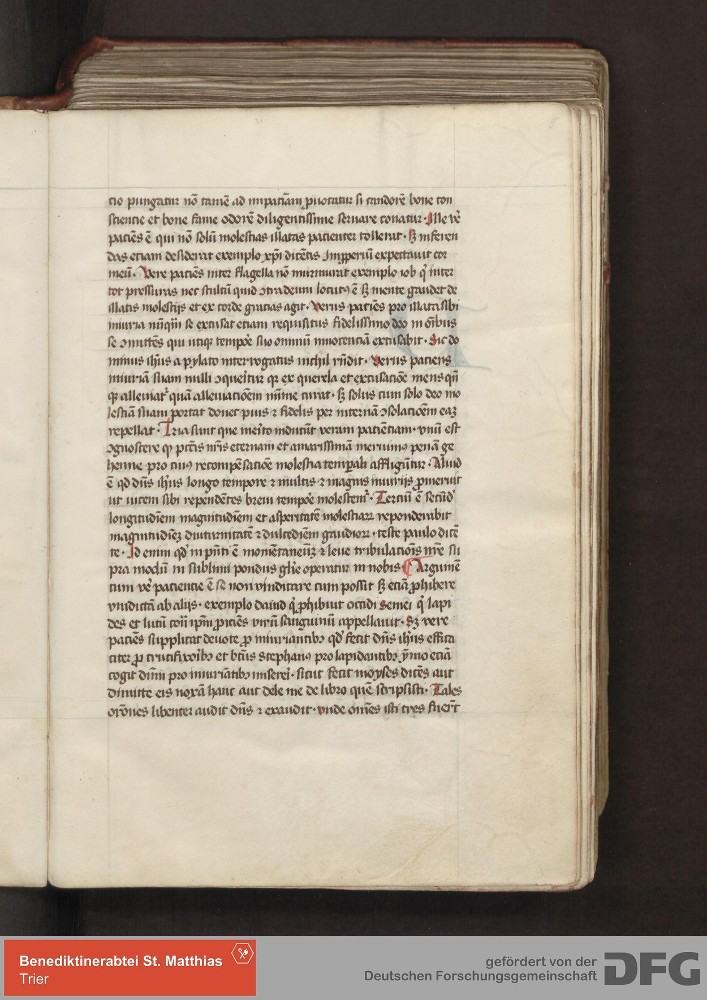 cio pungatur nō tamē ad impaciām ꝓuocatur si candorē bone con
sciencie et bone fame odorē diligentissime seruare conatur · Ille v̄e
paciēs ē qui nō solū molestias illatas pacienter tollerat · sꝫ inferen
das etiam desiderat exemplo xp̄i dicētis Imꝓperiū expectauit cor
meū · Vere paciēs inter flagella nō murmurat exemplo iob q̇ inter
tot pressuras nec stultū quid ꝯtra deum locutꝰ ē sꝫ mente gaudet de
illatis molestijs et ex corde gracias agit · Verus paciēs pro illata sibi
iniuria nūq̄m se excusat etiam requisitus fidelissimo deo in oībus
se ꝯmittēs qui utiqꝫ tempoē suo omniū innocenciā excusabit · Sic do
minus ih̄us a pylato interrogatus nichil rn̄dit · Verus paciens
iniuriā suam nulli ꝯqueritur qꝫ ex querela et excusacōe mens qn̄
qꝫ alleuiat᷑ quā alleuiacōem mīme curat · sꝫ solus cum solo deo mo
lestiā suam portat donec pius ⁊ fidelis per internā ꝯsolacōem eaꝫ
repellat · Tria sunt que merito inducūt veram pacienciam · vnū est
ꝯgnoscere qꝫ pctīs nr̄is eternam et amarissimā meruimꝰ penā ge
henne pro cuiꝰ recompēsacōe molestia temꝑali affligūtur · Aliud
ē qd̄ dn̄s ih̄us longo tempore ⁊ multis ⁊ magnis iniurijs ꝓmeruit
ut vicem sibi rependētes breui tempoē molestem᷑ · Terciū ē secūd̄
longitudīem magnitudīem et asperitatē molestiaꝝ reponderabit
magnitudīeꝫ diuturnitatē ⁊ dulcedīem gaudioꝝ · teste paulo dicē
te · Id enim qd̄ in pn̄ti ē momētaneūꝫ ⁊ leue tribulacōis nr̄e su
pra modū in sublimi pondus glīe operatur in nobis Argumē
tum v̄e paciencie ē se non vindicare cum possit sꝫ eciā ꝓhibere
vindictā ab alijs · exemplo dauid q̇ ꝓhibuit occidi semei q̇ lapi
des et lutū cont̄ ip̄m ꝓiciēs virū sanguinū appellauit · Sꝫ vere
paciēs supplicat deuote ꝓ iniuriantibꝰ qd̄ fecit dn̄s ih̄us effica
citer ꝓ crucifixoībꝰ et btūs stephanꝰ pro lapidantibꝰ ymo eciā
cogit dm̄ pro iniuriātibꝰ misereri · sicut fecit moyses dicēs aut
dimitte eis noxā hanc aut dele me de libro quē scripsisti · Tales
orōnes libenter audit dn̄s ⁊ exaudit · vnde om̄es isti tres fuer̄t
Benediktinerabtei St. Matthias
Trier
gefördert von der
Deutschen Forschungsgemeinschaft
DFG